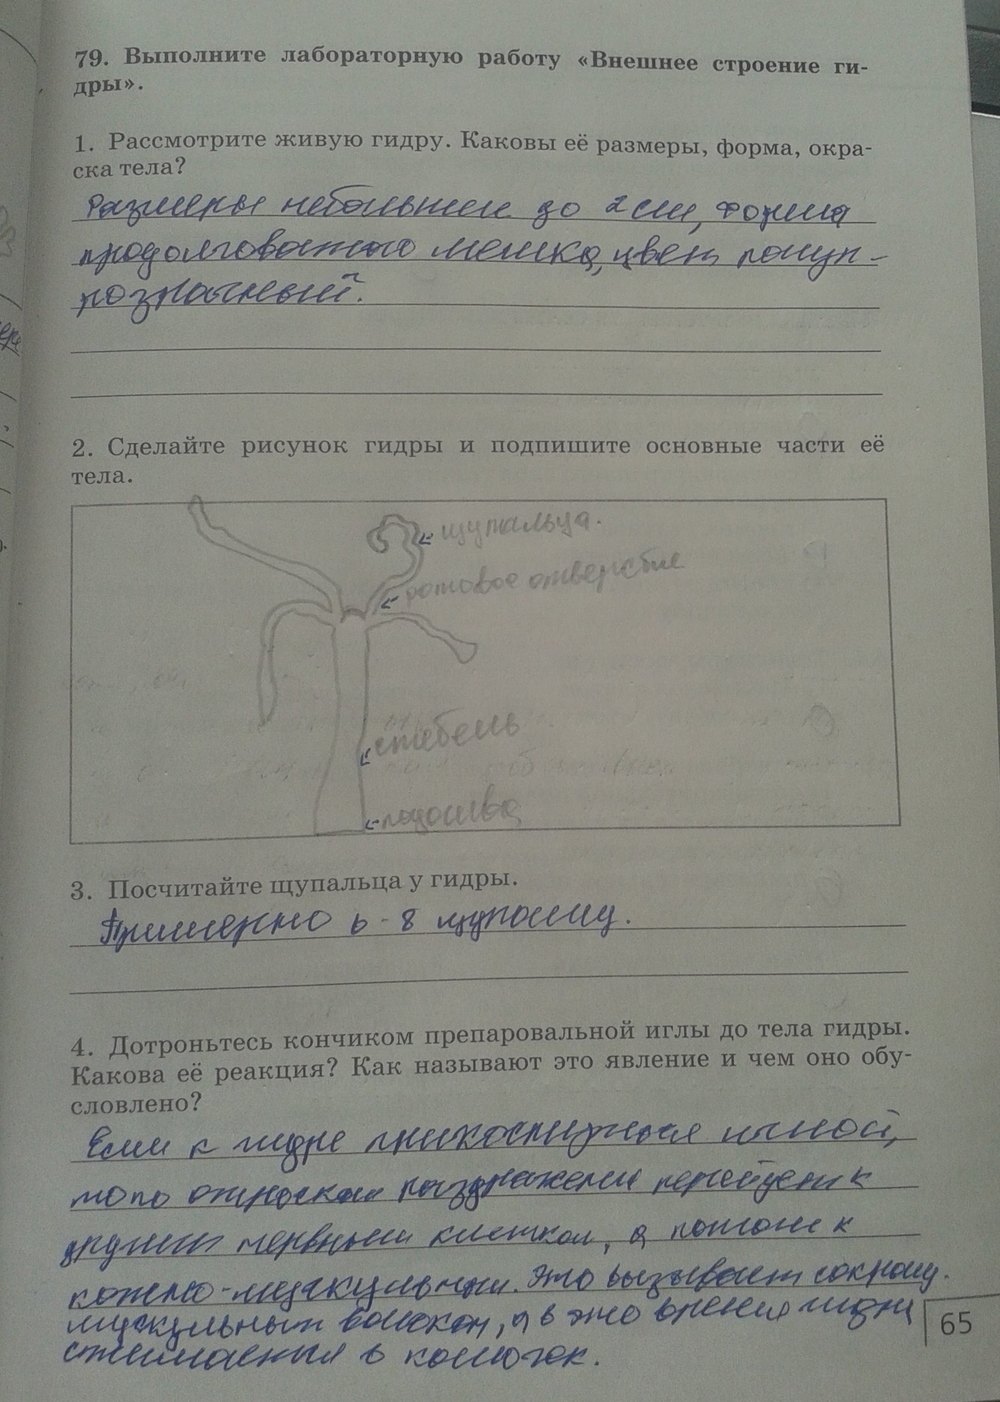 79. Выполните лабораторную работу «Внешнее строение ги-
дры».
1. Рассмотрите живую гидру. Каковы её размеры, форма, окра-
ска тела?
Размеры небольшие до 2 см, форма
продолговатого мешка, цвет полуп-
розрачный.
2. Сделайте рисунок гидры и подпишите основные части её
тела.
щупальца.
ротовое отверстие
стебель
подошва
3. Посчитайте щупальца у гидры.
Примерно 6-8 щупалец.
4. Дотроньтесь кончиком препаровальной иглы до тела гидры.
Какова её реакция? Как называют это явление и чем оно обу-
словлено?
Если к гидре прикоснуться иглой,
то по отросткам раздражение перейдет к
другим нервным клеткам, а потом к
кожно-мускульным. Это вызывает сокращ.
мускульных волокон, и в это время гидра
сжимается в комочек.
65